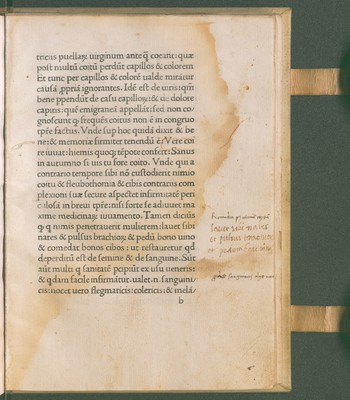 tricus puellaꝝ uirginum anteꝙ coeant: quæ
post multū coitū perdūt capillos & colorem
Et tunc per capillos & colorē ualde mirātur
causā ꝓpriā ignorantes. Idē est de uiris: qm̄
bene ppendūt de casu capilloꝝ: & de dolore
capitis: quē emigraneā appellāt: sed non co/
gnoscunt ꝙ frequēs coitus non ē in congruo
tpre factus. Vnde sup hoc quidā dixit & be
ne: & memoriæ firmiter tenendū ē: Vere coi
re iuuat: hiemis quoꝗ tēpote confert: Sanus
in autumno si uis tu fore coito. Vnde qui a
contrario tempore sibi nō custodierit nimio
coitu & fleubothomia & cibis contrariis com
plexioni suæ secure aspectet infirmitatē peri
culosā in breui tpre: nisi forte se adiuuet ma
xime medicinaꝝ iuuamento. Tamen dicimus
ꝙ ꝗ nimis penetrauerit mulierem: lauet sibi
nares & pulsus brachioꝝ & pedū bono uino
& comedat bonos cibos: ut restauretur qd
deperditū est de semine & de sanguine. Sūt
aūt multi ꝗ sanitatē pcipiūt ex usu ueneris:
& qdam facile infirmātur. ualet. n. sanguini
cis: nocet uero flegmaticis: colericis: & melā/
b
lauet sibi nares
et pulsus brachiorum
et pedum bono vino